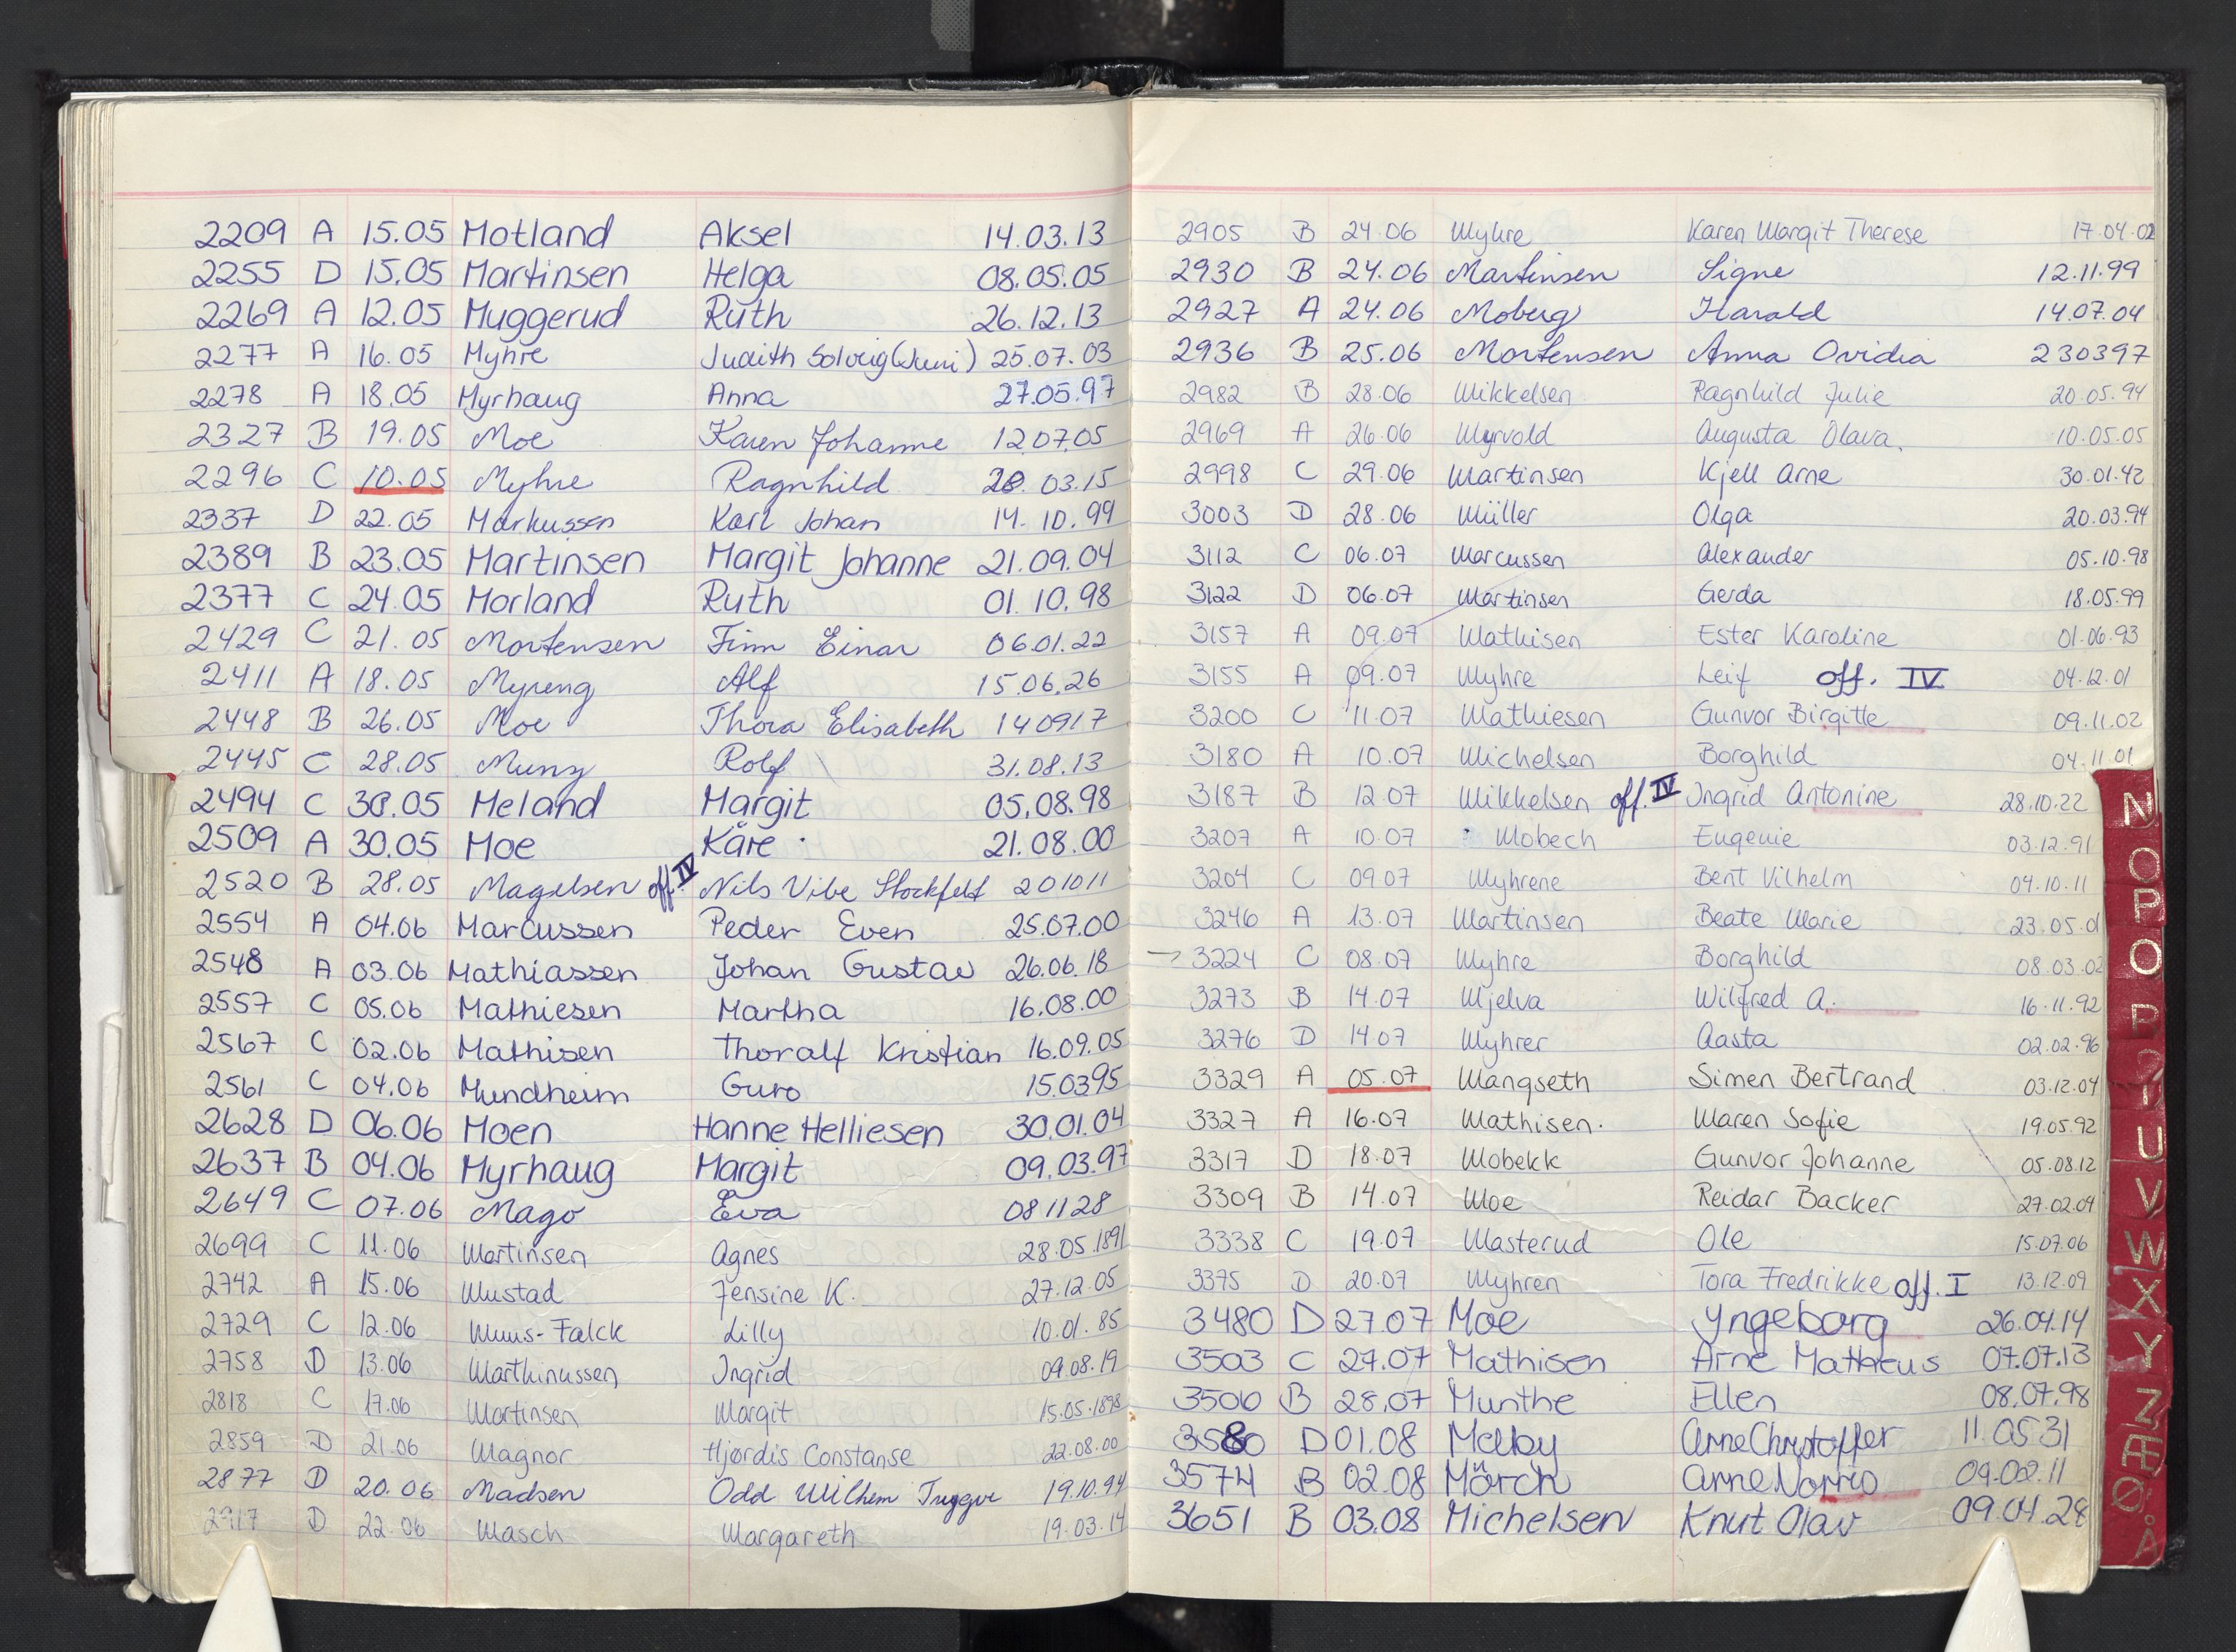 2209 A 15.05 Motland Aksel 14.03.13
2255 D 15.05 Martinsen Helga 08.05.05
2269 A 12.05 Muggerud Ruth 26.12.13
2277 A 16.05 Myhre Judith Solveig (Juni) 25.07.03
2278 A 18.05 Myrhaug Anna 27.05.97
2327 B 19.05 Moe Karen Johanne 12.07.05
2296 C 10.05 Myhre Ragnhild 28.03.15
2337 D 22.05 Markussen Karl Johan 14.10.99
2389 B 23.05 Martinsen Margit Johanne 21.09.04
2377 C 24.05 Morland Ruth 01.10.98
2429 C 21.05 Mortensen Finn Einar 06.01.22
2411 A 18.05 Myreng Alf 15.06.26
2448 B 26.05 Moe Thora Elisabeth 140917
2445 C 28.05 Rolf 31.08.13
2494 C 30.05 Meland Margit 05.08.98
2509 A 30.05 Moe Kåre 21.08.00
2520 B 28.05 Magelsen off. IV Nils Vibe Stockfelt 201011
2554 A 04.06 Marcussen Peder Even 25.07.00
2548 A 03.06 Mathiassen Johan Gustav 26.06.18
2557 C 05.06 Mathiesen Martha 16.08.00
2567 C 02.06 Mathisen Thoralf Kristian 16.09.05
2561 C 04.06 Mundheim Guro 15.0395
2628 D 06.06 Moen Hanne Helliesen 30.01.04
2637 B 04.06 Myrhaug Margit 09.03.97
2649 C 07.06 Mago Eva 081128
2699 C 11.06 Martinsen Agnes 28.05.1891
2742 A 15.06 Mustad Jensine K. 27.12.05
2729 C 12.06 Muus-Falck Lilly 10.01.85
2758 D 13.06 Marthinussen Ingrid 09.08.19
2818 C 17.06 Martinsen Margit 15.05.1898
2859 D 21.06 Magnor Hjørdis Constanse 22.08.00
2877 D 20.06 Madsen Odd Wilhem Tryggve 19.10.94
2917 D 22.06 Masch Margareth 19.03.14
2905 B 24.06 Myhre Karen Margit Therese 17.04.02
2930 B 24.06 Martinsen Signe 12.11.99
2927 A 24.06 Moberg Harald 14.07.04
2936 B 25.06 Mortensen Anna Ovidia 230397
2982 B 28.06 Mikkelsen Ragnhild Julie 20.05.94
2969 A 26.06 Myrvold Augusta Olava. 10.05.05
2998 C 29.06 Martinsen Kjell Arne 30.01.42
3003 D 28.06 Müller Olga 20.03.94
3112 C 06.07 Marcussen Alexander 05.10.98
3122 D 06.07 Martinsen Gerda 18.05.99
3157 A 09.07 Mathisen Ester Karoline 01.06.93
3155 A 09.07 Myhre Leif off. IV 04.12.01
3200 C 11.07 Mathiesen Gunvor Birgitte 09.11.02
3180 A 10.07 Michelsen Borghild 04.11.01
3187 B 12.07 Mikkelsen off. IV Ingrid Antonine 28.10.22
3207 A 10.07 Mobech Eugenie 03.12.91
3204 C 09.07 Myhrene Bent Vilhelm 04.10.11
3246 A 13.07 Martinsen Beate Marie 23.05.01
→ 3224 C 08.07 Myhre Borghild 08.03.02
3273 B 14.07 Mjelva Wilfred A. 16.11.92
3276 D 14.07 Myhrer Aasta 02.02.96
3329 A 05.07 Mangseth Simen Bertrand 03.12.04
3327 A 16.07 Mathisen. Maren Sofie 19.05.92
3317 D 18.07 Mobekk Gunvor Johanne 05.08.12
3309 B 14.07 Moe Reidar Backer 27.02.09
3338 C 19.07 Masterud Ole 15.07.06
3375 D 20.07 Myhren Tora Fredrikke off. I 13.12.09
3480 D 27.07 Moe Yngeborg 26.04.14
3503 C 27.07 Mathisen Arne Matheus 07.07.13
3506 B 28.07 Munthe Ellen 08.07.98
3580 D 01.08 Melby Arne Christoffer 11.05 31
3574 B 02.08 Mörch Arne 09.02.11
3651 B 03.08 Michelsen Knut Olav 09.04.28
N
O
P
O
P
U
V
W
X
Y
Z
Æ
Ø
Å